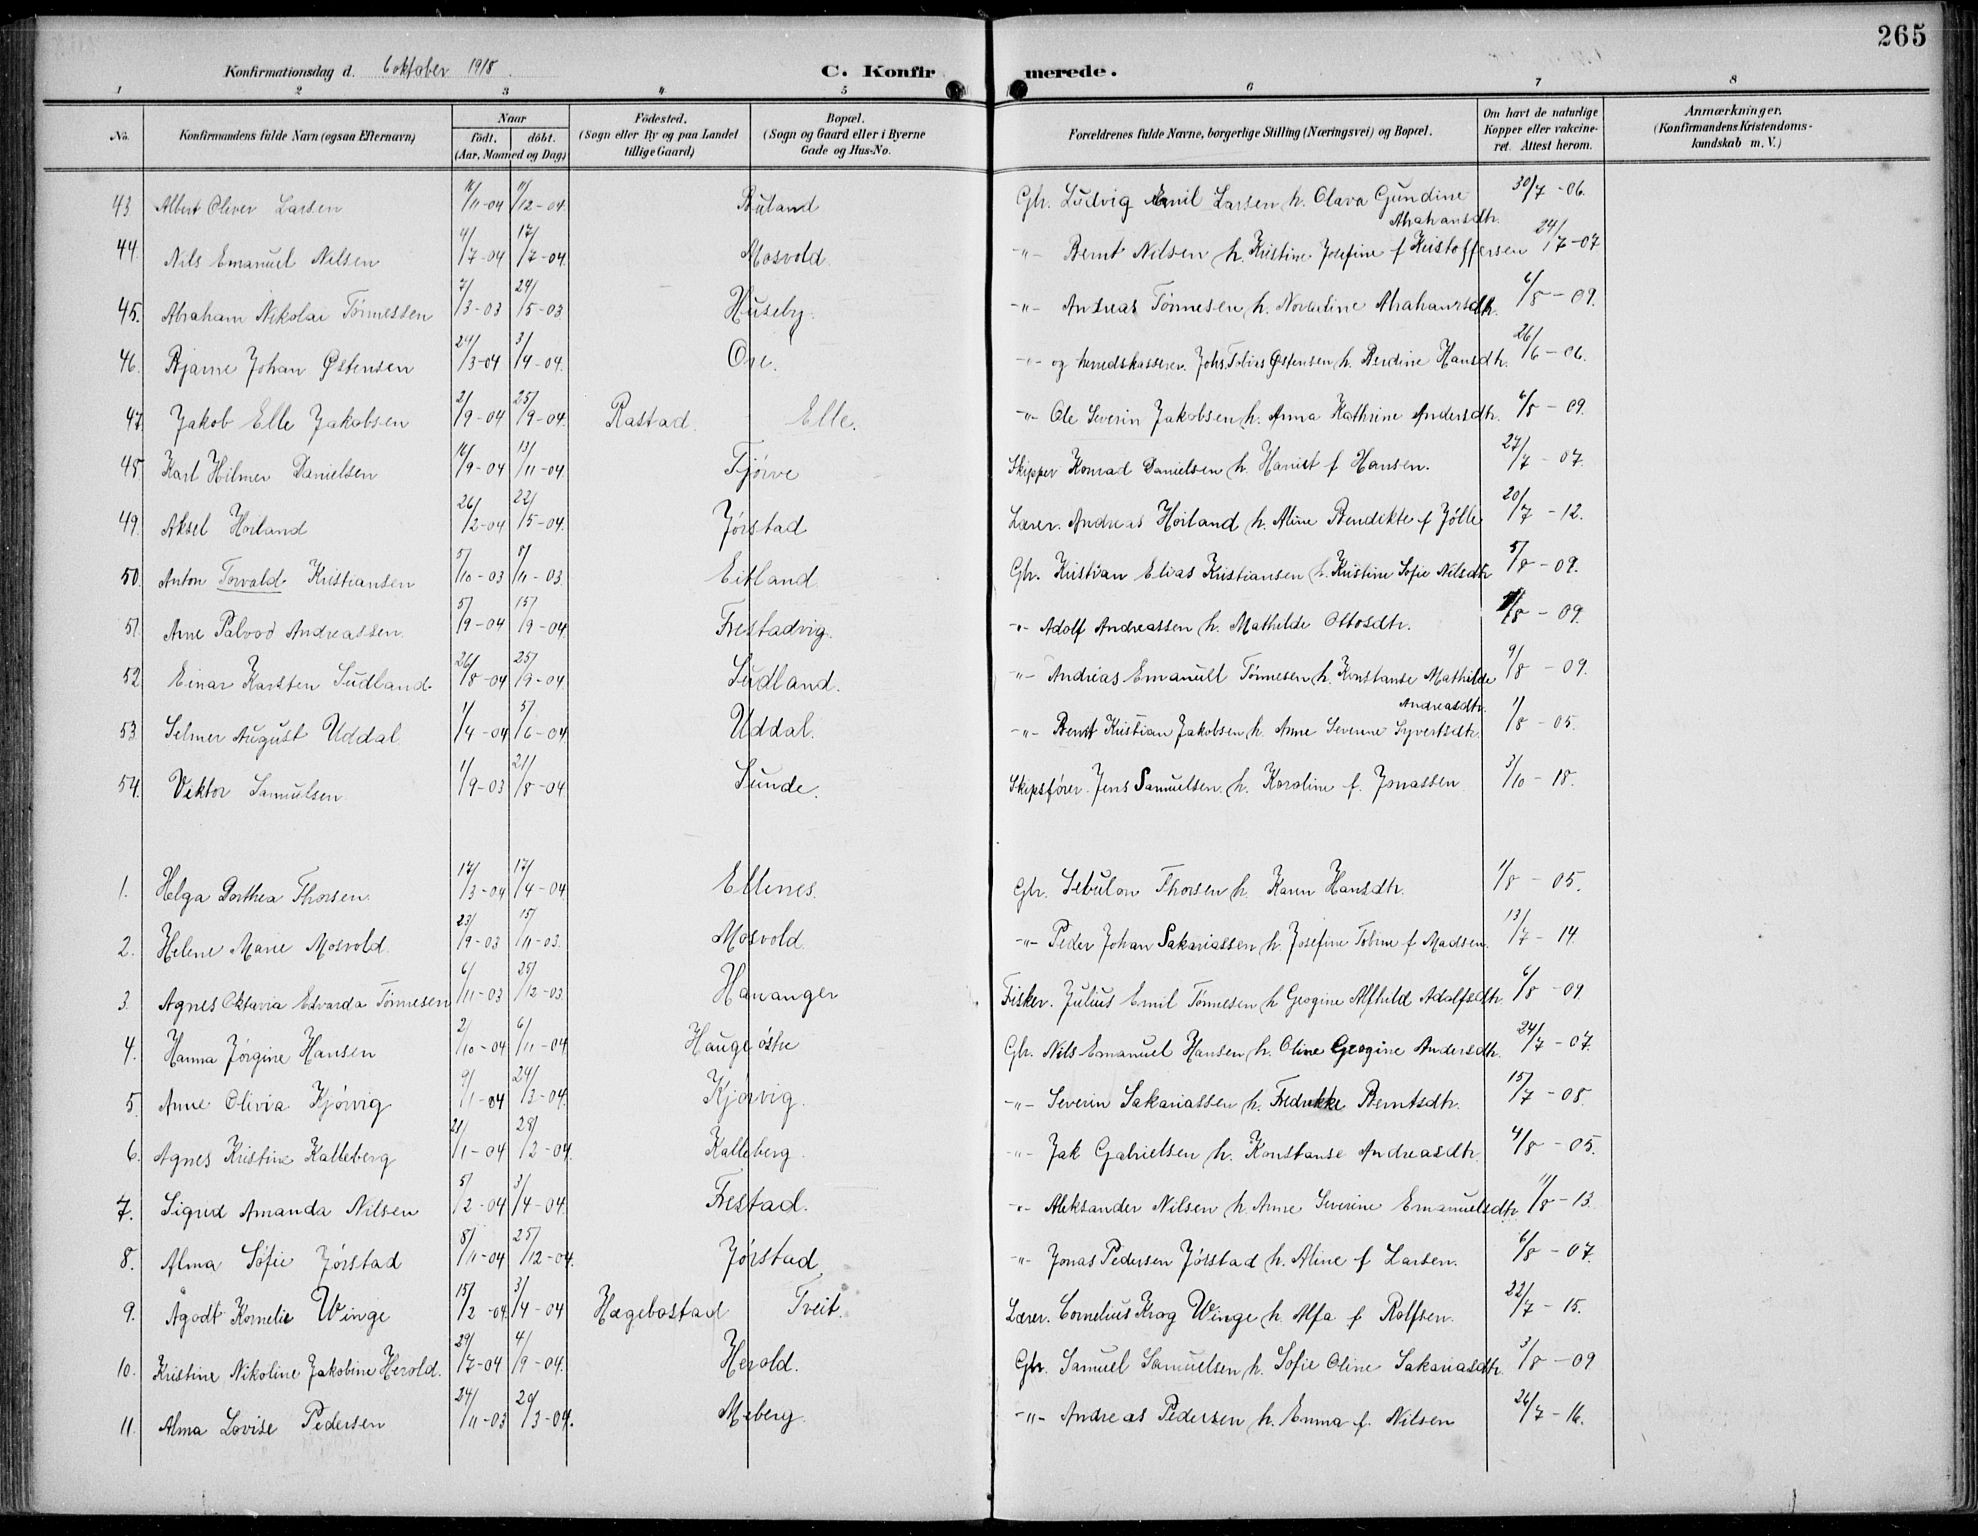 265
Konfirmationsdag d. 6 oktober 1918. C. Konfirmerede.
1 2 3 4 5 6 7 8
No. Konfirmandens fulde Navn (ogsaa Efternavn) Naar födt. döbt. (Aar, Maaned og Dag) Födested. (Sogn eller By og paa Landet tillige Gaard) Bopæl. (Sogn og Gaard eller i Byerne Gade og Hus-No. Forældrenes fulde Navne, borgerlige Stilling (Næringsvei) og Bopæl. Om havt de naturlige Kopper eller vakcineret. Attest herom. Anmærkninger. (Konfirmandens Kristendomskundskab m. V.)
43 Albert Oliver Larsen 16/11-04 11/12-04. Buland Gbr. Ludvig Emil Larsen h. Olava Gundine Abrahamsdtr. 30/7-06.
44. Nils Emanuel Nilsen 4/7-04 17/7-04. Mosvold. -"- Bernt Nilsen h. Kristine Josefine f Kristoffersen 24/7-07
45. Abraham Nikolai Tönnessen 7/3-03 24/5-03 Huseby. -"- Andreas Tönnesen h. Norbeline Abrahamsdtr. 6/8-09.
46. Bjarne Johan Østensen 24/3-04 3/4-04. Ore. -"- og herredskasserer. Johs. Tobias Østensen h. Berdine Hansdtr. 26/6-06.
47 Jakob Elle Jakobsen 2/9-04 25/9-04. Rastad. Elle. -"- Ole Severin Jakobsen h. Anna Kathrine Andersdtr. 6/8-09.
48. Karl Hilmer Danielsen 16/9-04 13/11-04. Tjörve Skipper Konrad Danielsen h. Hariet f Hansen. 27/7-07.
49. Aksel Höiland 26/2-04 22/5-04. Jörstad Lærer. Andreas Höiland h. Aline Bendikte f Jölle 20/7-12.
50. Anton Torvald Kristiansen 5/10-03 8/11-03. Eitland Gbr. Kristian Elias Kristiansen h. Kristine Sofie Nilsdtr 5/8-09.
51. Arne Palvod Andreassen. 5/9-04 15/9-04 Frestadvig. -"- Adolf Andreassen h. Mathilde Ottosdtr. /8-09.
52. Einar Karsten Sudland. 26/8-04 25/9-04. Sudland. -"- Andreas Emanuel Tönnesen h. Konstanse Mathilde Andreasdtr. 9/8-09.
53. Selmer August Uddal 1/4-04 5/6-04 Uddal. -"- Bernt Kristian Jakobsen h. Anne Severine Syvertsdtr. 1/8-05.
54. Viktor Samuelsen 1/9-03 21/8-04 Sunde. Skipsfører. Jens Samuelsen h. Karoline f. Jonassen 3/10-18.
1. Helga Dorthea Thorsen. 17/3-04 17/4-04 Ellenes. Gbr. Sebulon Thorsen h. Karen Hansdtr. 1/8-05.
2. Helene Marie Mosvold. 23/9-03 15/11-03. Mosvold. -"- Peder Johan Sakariassen h. Josefine Tobine f Madsen. 13/7-14.
3. Agnes Oktavia Edvarda Tönnesen 6/11-03 25/12-03. Hananger Fisker. Julius Emil Tönnesen h Georgine Alfhild Adolfsdtr. 6/8-09.
4. Hanna Jörgine Hansen 2/10-04 6/11-04 Hauge östre Gbr. Nils Emanuel Hansen h. Oline Georgine Andersdtr. 24/7-07.
5. Anne Olivia Kjörvig 9/1-04 24/3-04. Kjörvig. -"- Severin Sakariassen h. Fredrikke Berntsdtr. 15/7-08.
6. Agnes Kristine Kalleberg 21/11-04 28/12-04. Kalleberg. -"- Jak Gabrielsen h. Konstanse Andreasdtr. 4/8-05.
7. Sigrid Amanda Nilsen 5/2-04 3/4-04. Frestad. -"- Aleksander Nilsen h. Anne Severine Emanuelsdtr. 11/8-13.
8. Alma Sofie Jörstad 8/11-04 25/12-04. Jörstad -"- Jonas Pedersen Jörstad h. Aline f Larsen. 6/8-07.
9. Agodt Kornelie Winge 15/2-04 3/4-04 Hægebostad Tveit. Lærer. Cornelius Krog Winge h. Alfa f Rolfsen. 22/7-15.
10. Kristine Nikoline Jakobine Herold. 29/7-04 4/9-04. Herold. Gbr. Samuel Samuelsen h. Sofie Oline Sakariasdtr. 3/8-09
11. Alma Lovise Pedersen 24/11-03 20/3-04. Meberg. -"- Andreas Pedersen h. Emma f. Nilsen 26/7-16.